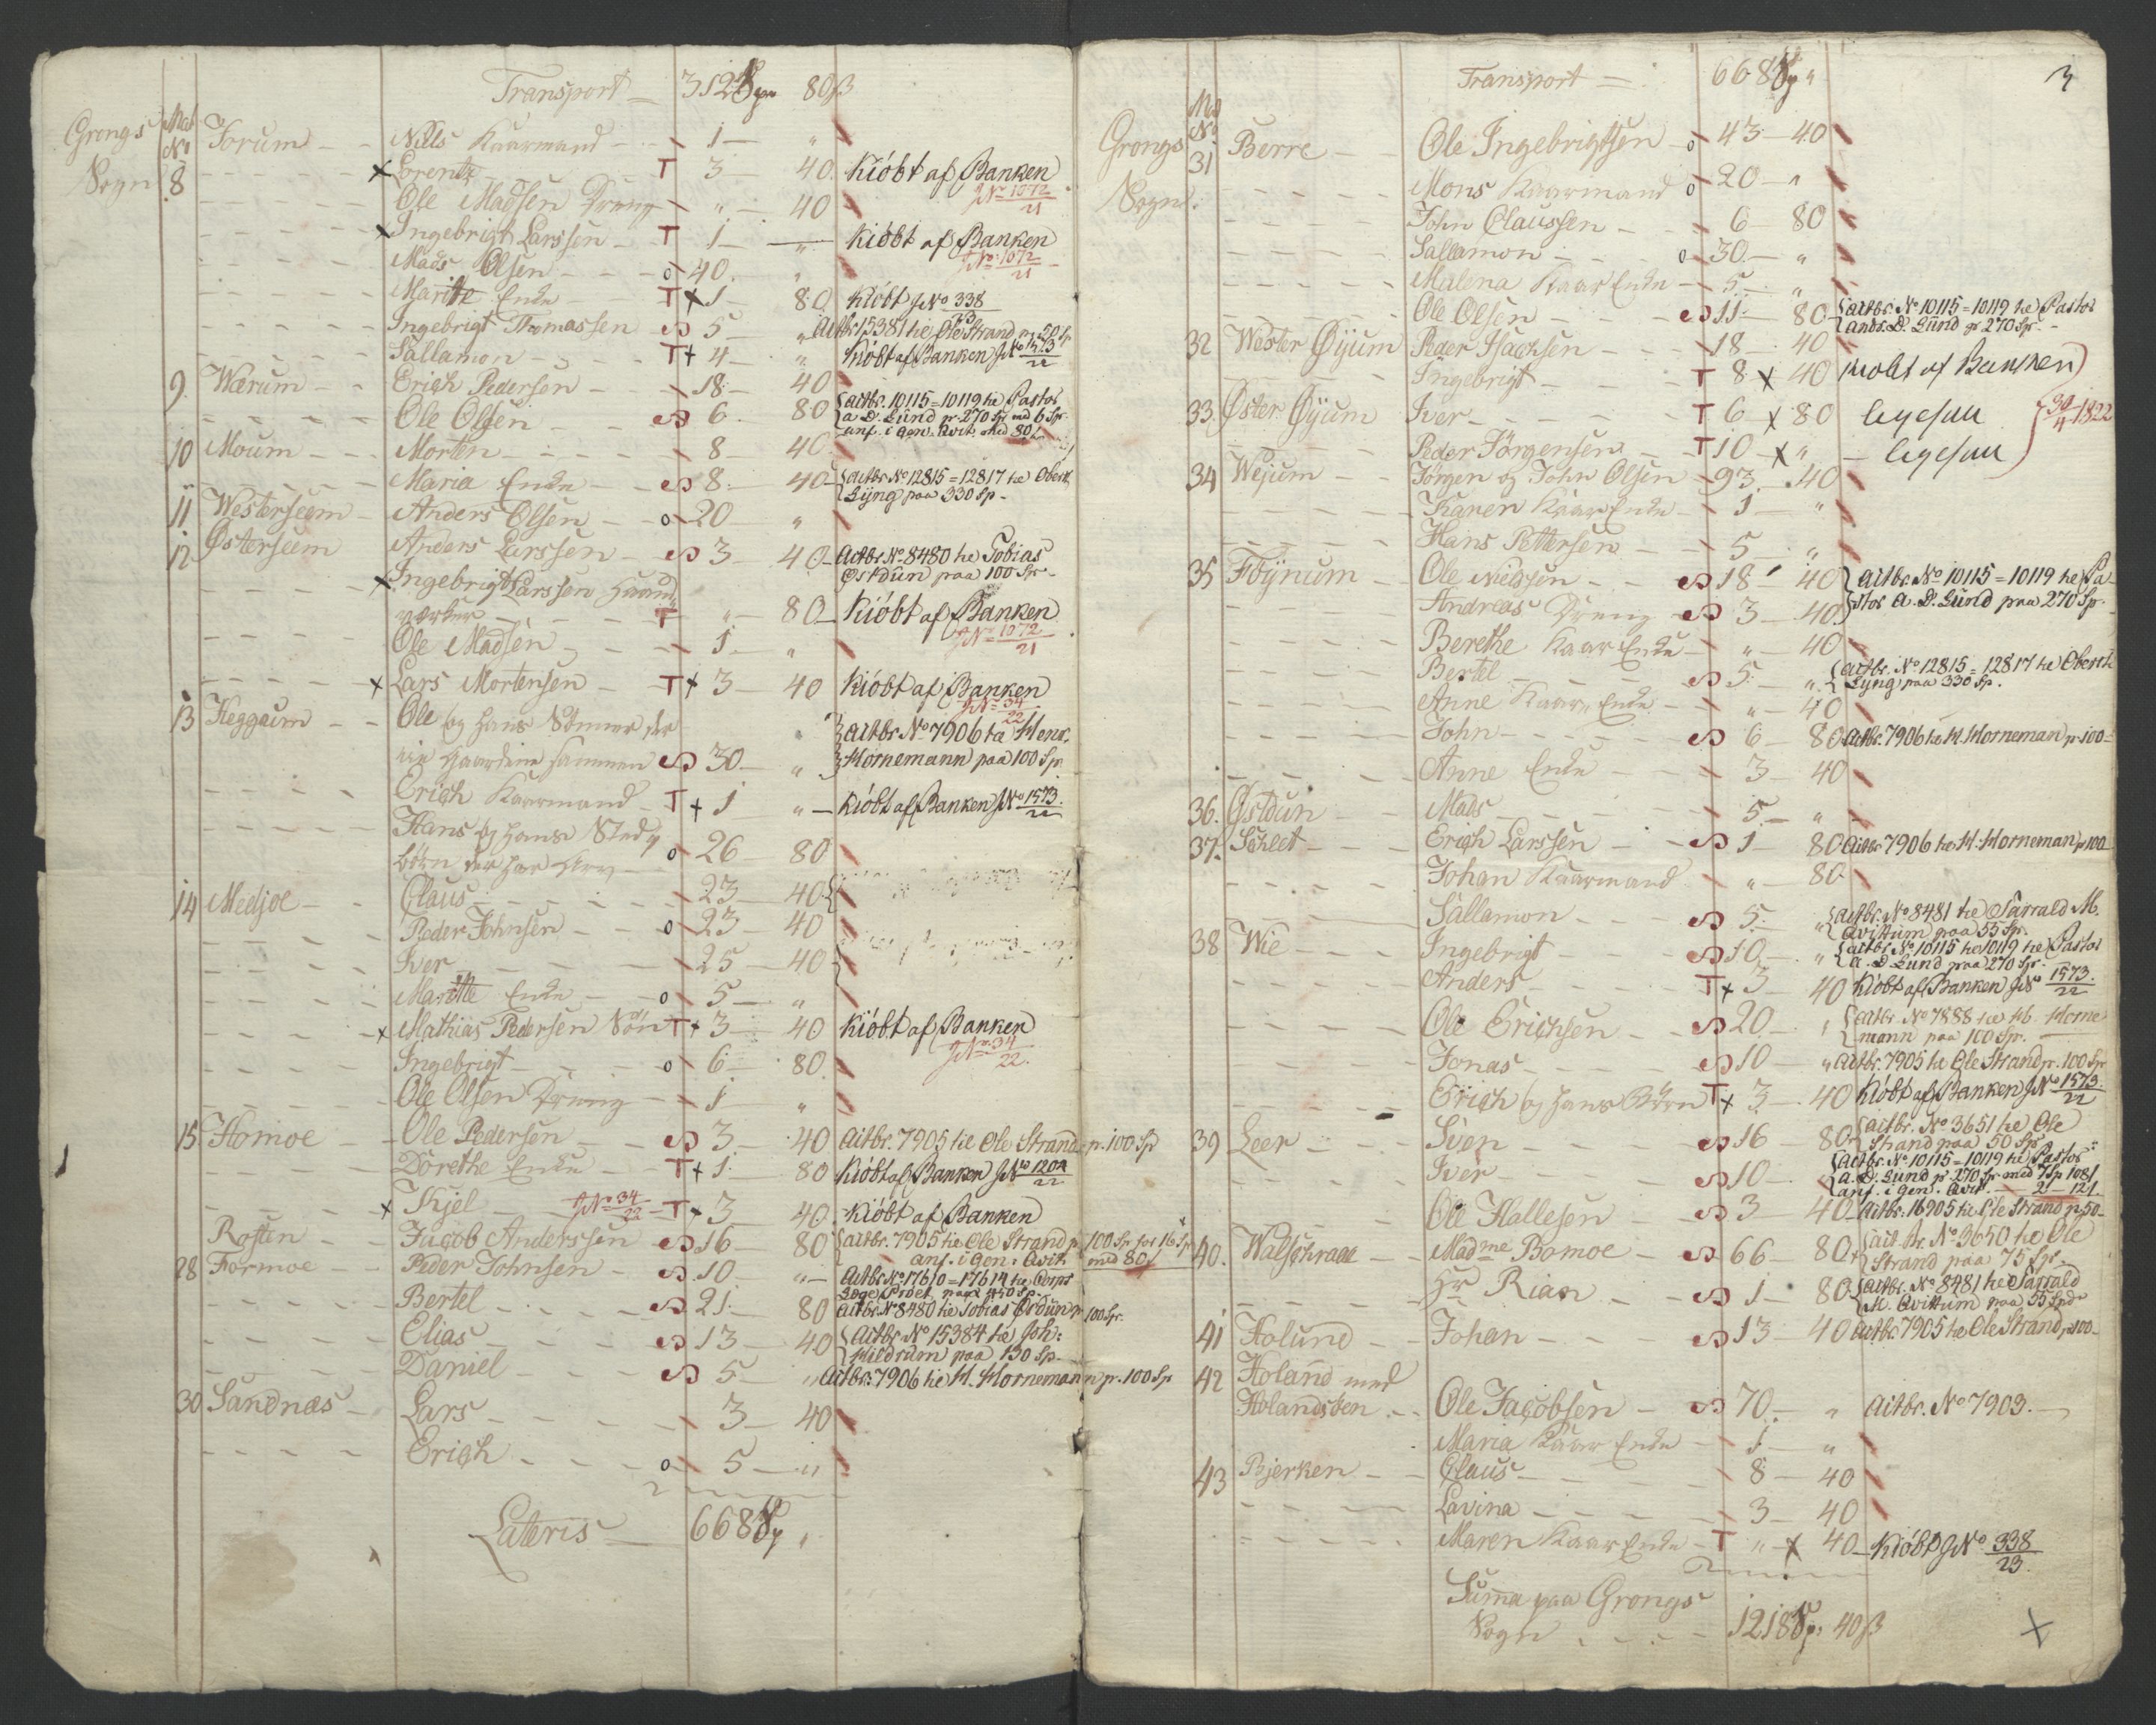 Transport = 312 Sp 80 ß
Grongs Sogn
Mat No
8 Forum - - Nills Kaarmand - 1 - "
x Lorentz - - T 3 40. Kióbt af Banken JNo 1072/21
Ole Madsen Dreng - " - 40
x Ingebrigt Larssen - T 1 - " Kióbt af Banken JNo 1072/21
Mads Olsen - - o 40. "
Marite Enke - T x 1 - 80 Kióbt JNo 338/23
Ingebrigt Thomassen S 5 - " Actbr. 15381 he Ole Strand p. 50 Sp
Sallamon - - T + 4 - " Kióbt af Banken JNo 1573/22
9. Wærum - - Erich Pedersen - 18 - 40
Ole Olsen - - S 6. 80 {actbr. 10115=10119 he Pastor
a. D. Lund pr 270 Sp med 6 Sp.
anf. i Gen. Qvit. med 80 ß
10 Moum - - Morten - - - 8 - 40.
Maria Enke - - S 8. 40 {actbr No 12815=12817 he Oberst
Lÿng paa 330 Sp -
11 Westerseem - Anders Olsen - - o 20 "
12 Østerseem Anders Larssen - S 3 - 40 - Actbr No 8480 he Tobias
Østdun paa 100 Sp -
x Ingebrigt Larssen Haand
værker - - T " - 80 - Kióbt af Banken JNo 1072/21
Ole Madsen - - 1. - "
x Lars Mortensen - T + 3 - 40 Kióbt af Banken JNo 34/22
13 Heggeim - - Ole og hans Sönner der " }Actbr No 7906 ta Henr.
eie Gaarden sammen S 30 - " }Hornemann paa 100 Sp.
Erich Kaarmand - T + 1 " - Kióbt af Banken JNo 1573/22
Hans og hans Sted
börn der har Arv - o 26 - 80
14 Medjoe - - Claus - - - 23 - 40
Peder Johnsen - - o 23 - 40
Iver - - - 25 - 40
Maritte Enke - - o 5 - "
x Mathias Pedersen Sön T + 3 - 40 Kióbt af Banken JNo 34/22.
Ingebrigt - - - o 6 - 80
Ole Olsen Dreng - 1 "
15 Homoe - - Ole Pedersen - - S 3 - 40 Actbr. 7905 he Ole Strand p. 100 Sp
Dorethe Enke - - T + 1. 80 Kióbt af Banken JNo 1204/22
x Kjel - JNo 34/22 - T + 3 - 40. Kióbt af Banken
Rosten - - Jacob Anderssen S 16 - 80 {actbr. 7905 he Ole Strand p 100 Sp for 16 Sp
anf. i Gen: Qvit. med 80 ß
28 Formoe - - Peder Johnsen - S 10 - " - Actbr No 17610=17614 he Corps
Bertel - - - S 21. 80 Actbr No 8480 he Tobias Østdun p 100 Sp.
Elias - - - S 13 - 40 {Actbr. No 15384 he Joh:
Mildrum paa 130 Sp -
Daniel - - - S 5 - " Actbr: 7906 he H. Horneman p. 100 Sp
30 Sandnæs - Lars - - - 3 - 40
Erich - - - o 5 - "
Lateris = 668 Sp "
3
Transport = 668 Sp "
Grongs Sogn.
Mat No
31 Berre - - Ole Ingebrigtsen - o 43 - 40
Mons Kaarmand o 20 - "
John Claussen - - 6 80
Sallamon - - - o 30 - "
Malena Kaar Enke - 5 - "
Ole Olsen - - S 11 - 80 - {actbr. No 10115=10119 he Pastor
ands. D. Lund pr 270 Sp -
32 Wester Øÿum Peder Isachsen - - 18 - 40
Ingebrigt - - - T 8 x 40 kiobt af Banken)
33. Øster Øÿum Iver - - - T 6 x 80 ligesaa } 30/4 1822
Peder Jörgensen - T 10 - x " - ligesaa
34 Wejum - - Jörgen og John Olsen - 93. - 40
Karen Kaar Enke - 1 - "
Hans Pettersen - - 5 - "
35 Föÿnum - - Ole Nielssen - - S 18 - 40 {Actbr. No 10115=10119 he Pa-
Andreas Dreng - S 3 - 40. }stor A. D. Lund paa 270 Sp.
Berethe Kaar Enke - " - 40
Bertel - - - S 5. - " {actbr. No 12815=12817 he Oberstl
Lÿng paa 330 Sp.
Anne Kaar Enke - " - 40
John - - - S 6 - 80 Actbr. 7906 he H. Horneman p. 100 -
Anne Enke - - 3 - 40
36. Østdun - - Mads - - - 5 - "
37. Sählet - - Erich Larssen - - S 1 - 80 Actbr 7906 he H. Horneman p 100
Johan Kaarmand - " - 80
Sallamon - - S 5 - " {actbr. No 8481 he Sarrald M.
Qvittum paa 55 Sp.
38 Wie - - Ingebrigt - - S 10 - " {actbr No 10115 he 10119 he Pastor
a. D Lund paa 270 Sp.
Anders - - - T + 3 - 40 Kióbt af Banken JNo 1573/22
Ole Erichsen - S 20 - " {Actbr. No 7888 he Hb. Horne
mann paa 100 Sp. -
Jonas - - - S 10 - " Actbr. 7905 he Ole Strand p. 100 Sp
Erich og hans Börn T + 3 - 40 Kióbt af Banken JNo 1573/22
39 Leer - - Sven - - - S 16 - 80 {actbr. No 3651 he Ole
Strand paa 50 Sp
Iver - - - S 10 - {Actbr No 10115=10119 he Pastor
a. D. Lund pr 270 Sp med 7 Sp 108 ß
anf. i Gen. Qvit. - 2 - 12 ß
Ole Hallesen - S 3 - 40 - Actbr. 16905 he Ole Strand p 50 -
40. Walschraae - - Madme Bomoe - S 66 - 80 {act br. No 3650 he Ole
Strand paa 75 Sp -
Hr Rian - - S 1 - 80 {Actbr. No 8481 he Sarrald
M. Qvittum paa 55 Sp
41 Holund - - Johan - - S 13 - 40 Actbr. 7905 he Ole Strand p 100 -
42 Holand med
Holandsken - - Ole Jacobsen - S 70 - " Actbr. No 7903. -
Maria Kaar Enke - 1 - "
43 Bjerken - - Claus - - 8 - 40
Lavina - - - 3 - 40
Maren Kaar Enke - T " - x 40 - Kióbt JNo 338/23.
Summa paa Grongs
Sogn - - - 1218 Sp: 40 ß
x